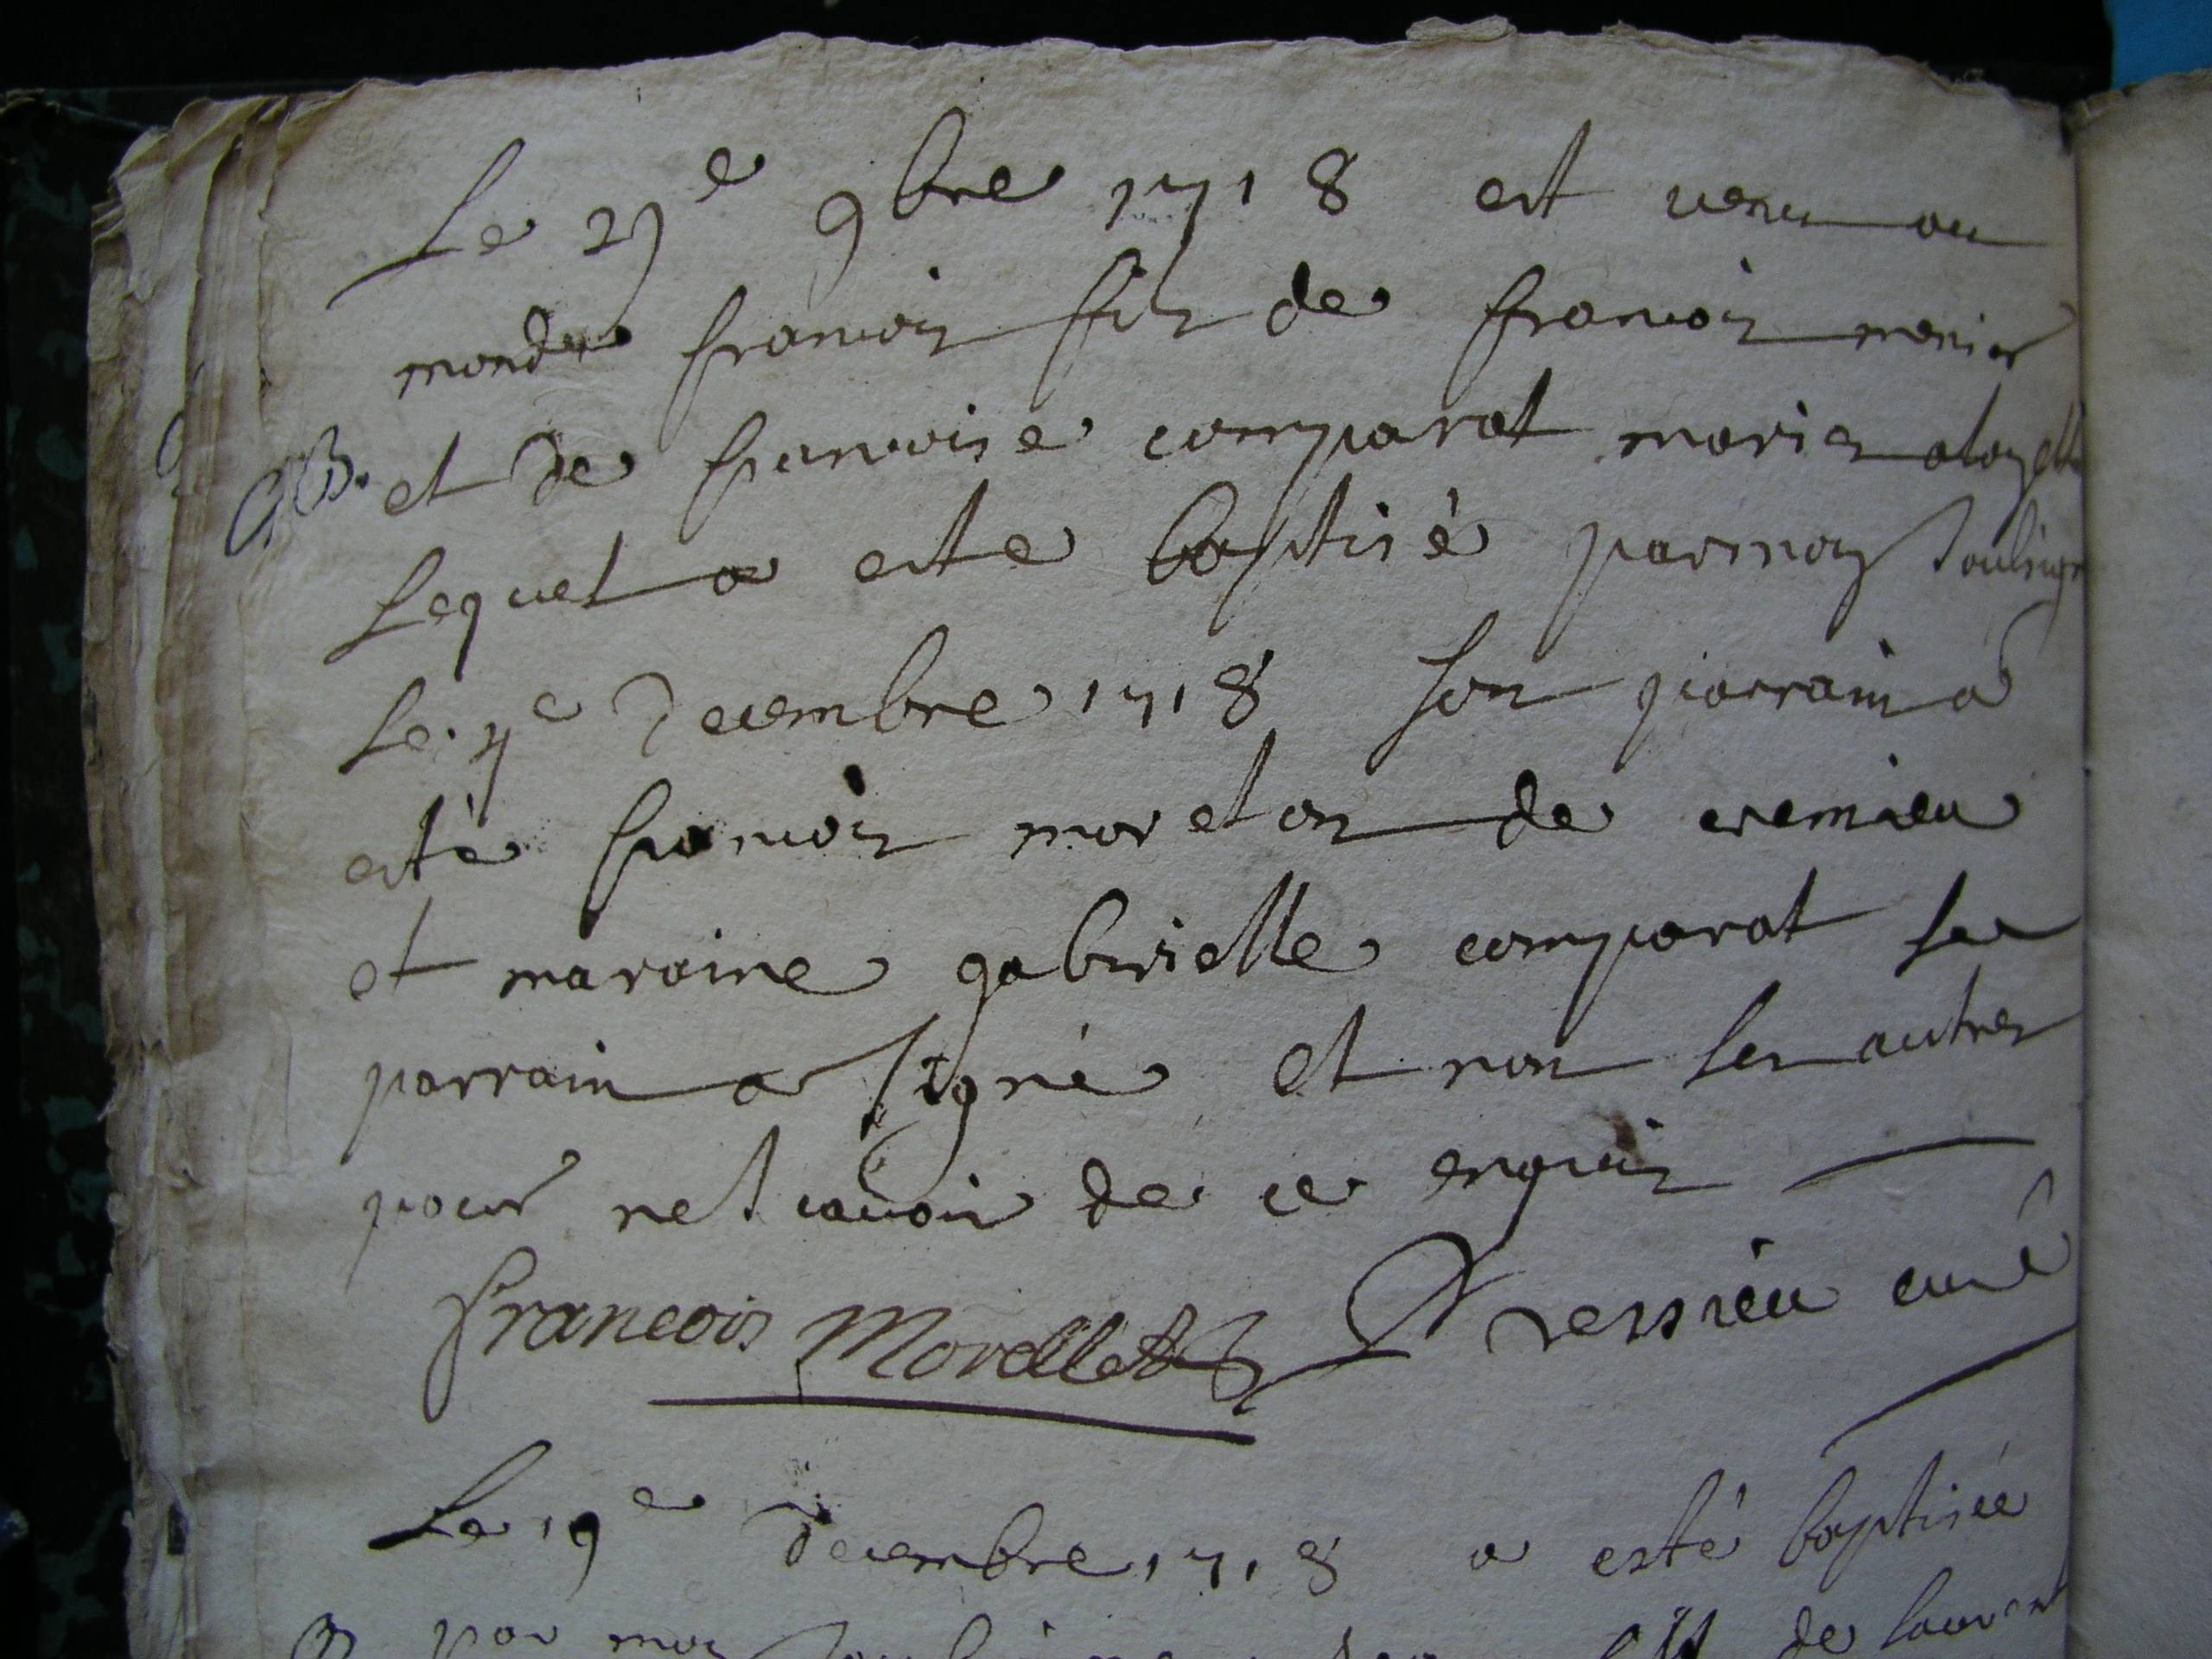 Le 29e 9bre 1718 est venu au
monde francois fils de francois monier
et de francoise comparat maries aloyette
B.
Lequel a este baptisé par moy soubsigne
Le 4e decembre 1718 son parrain a
esté francois morel on de cremieu
et maraine gabrielle comparat le
parrain a signé et non les autres
pour ne scavoir de ce enquis
francois Morellet Dressieu curé
Le 19e decembre 1718 a esté baptisée
B par moy de laurent